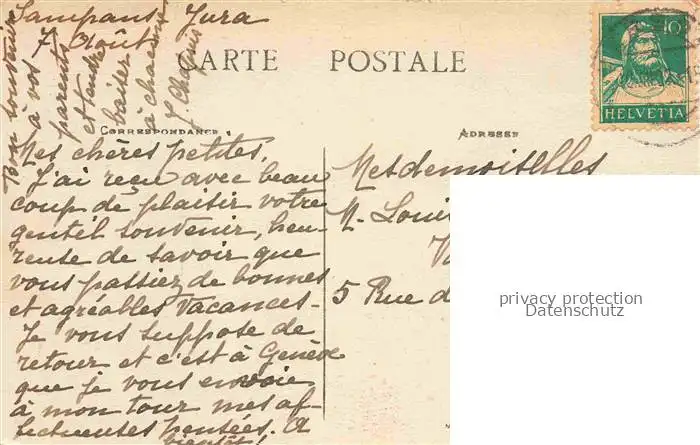 Sampans Jura
7 Août
CARTE POSTALE
10
HELVETIA
CORRESPONDANCE
ADRESSE
Mes chères petites,
J'ai reçu avec beau
coup de plaisir votre
gentil souvenir, heu-
reuse de savoir que
vous passiez de bonnes
et agréables vacances-
Je vous suppose de
retour et c'est à Genève
que je vous envoie
à mon tour mes af-
fectueuses pensées. A
bientôt!
Bon souvenir
à vos
parents
et tendre
baiser
à chacune
J Chapuis
Mesdemoiselles
M. Loui
5 Rue d
privacy protection
Datenschutz